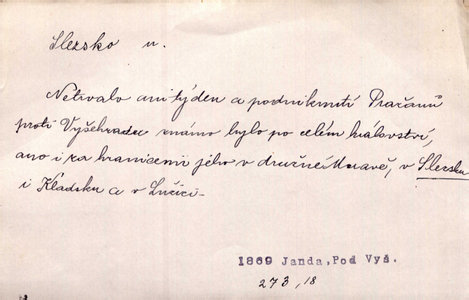 Slezsko n.
Netrvalo ani týden a podniknutí Pražanů
proti Vyšehradu známo bylo po celém království,
ano i za hranicemi jeho v družné Moravě, v Slezsku
i Kladsku a v Lužici.
1869 Janda, Pod Vyš.
273,18